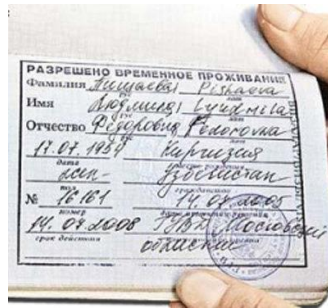 РАЗРЕШЕНО ВРЕМЕННОЕ ПРОЖИВАНИЕ
Фамилия Пишаева Pishaeva
Имя Людмила Lyudmila
Отчество Фёдоровна
17.07.1954 Киргизия
дата
жен- Узбекистан
пол гражданство
№ 16161 14.07.2005
номер дата принятия решения
14.07.2008 Московской
срок действия области